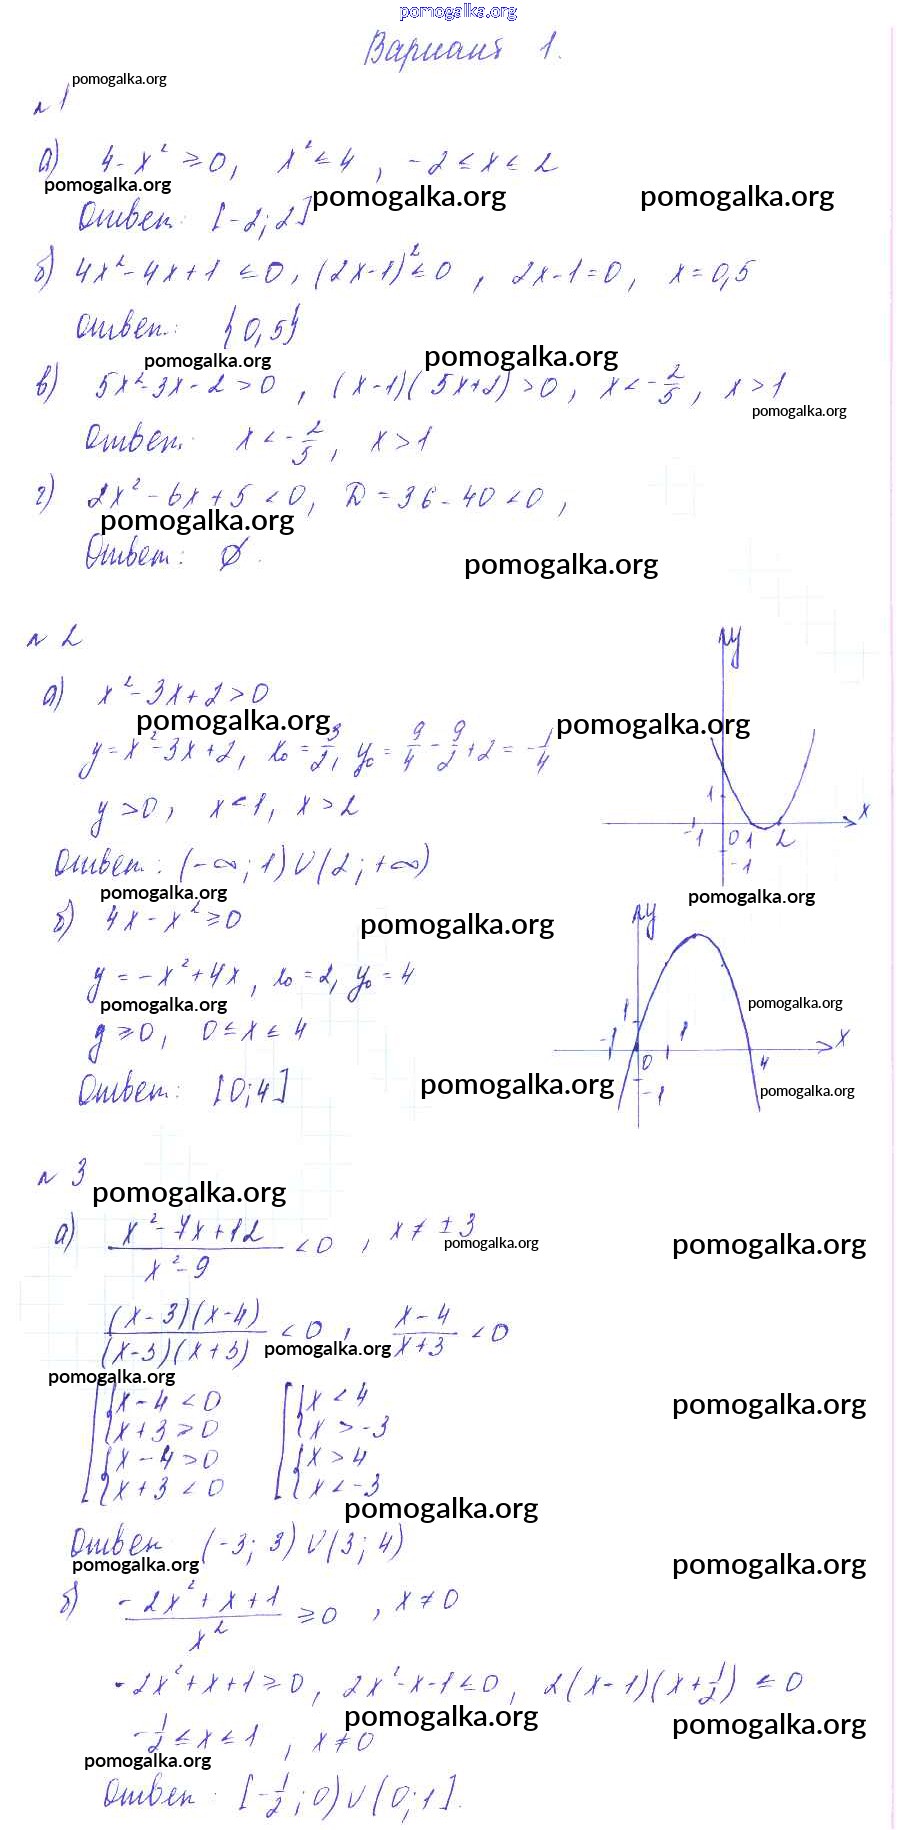 pomogalka.org
Вариант 1.
pomogalka.org
№1
а) 4-x² ≥ 0, x² ≤ 4, -2 ≤ x ≤ 2
pomogalka.org pomogalka.org pomogalka.org
Ответ: [-2; 2]
б) 4x²-4x+1 ≤ 0, (2x-1)² ≤ 0, 2x-1=0, x=0,5
Ответ: {0,5}
pomogalka.org pomogalka.org
в) 5x²-3x-2 > 0, (x-1)(5x+2) > 0, x < -2/5, x > 1
pomogalka.org
Ответ: x < -2/5, x > 1
г) 2x²-6x+5 < 0, D = 36-40 < 0,
pomogalka.org
Ответ: ∅.
pomogalka.org
№ 2
а) x²-3x+2 > 0
pomogalka.org pomogalka.org
y = x²-3x+2, x₀ = 3/2, y₀ = 9/4 - 9/2 + 2 = -1/4
y > 0, x < 1, x > 2
y x 1 -1 0 1 2 -1
Ответ: (-∞; 1) ∪ (2; +∞)
pomogalka.org pomogalka.org
б) 4x-x² ≥ 0
pomogalka.org
y = -x²+4x, x₀ = 2, y₀ = 4
pomogalka.org pomogalka.org
y ≥ 0, 0 ≤ x ≤ 4
y x 1 -1 0 1 4 -1
Ответ: [0; 4]
pomogalka.org pomogalka.org
№ 3
pomogalka.org
а) (x²-7x+12)/(x²-9) < 0, x ≠ ±3
pomogalka.org pomogalka.org
((x-3)(x-4))/((x-3)(x+3)) < 0, (x-4)/(x+3) < 0
pomogalka.org
pomogalka.org
[ { x-4 < 0 [ { x < 4
x+3 > 0 x > -3
{ x-4 > 0 { x > 4
x+3 < 0 x < -3
pomogalka.org
pomogalka.org
Ответ: (-3; 3) ∪ (3; 4)
pomogalka.org pomogalka.org
б) (-2x²+x+1)/x² ≥ 0, x ≠ 0
-2x²+x+1 ≥ 0, 2x²-x-1 ≤ 0, 2(x-1)(x+1/2) ≤ 0
pomogalka.org pomogalka.org
-1/2 ≤ x ≤ 1, x ≠ 0
pomogalka.org
Ответ: [-1/2; 0) ∪ (0; 1].